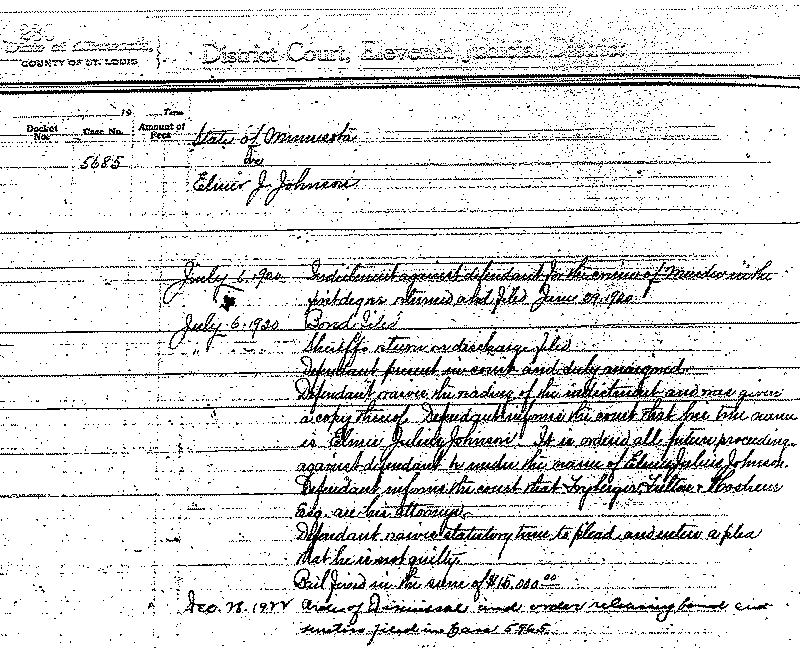 State of Minnesota,
COUNTY OF ST. LOUIS
District Court, Eleventh Judicial District
19 Term
Docket No. Case No. Amount of Fees
State of Minnesota
5685 vs
Elmer J. Johnson
July 6, 1920 Indictment against defendant for the crime of Murder in the
first degree returned and filed June 29, 1920.
July 6, 1920 Bond filed
" " " Sheriff's return on discharge filed
Defendant present in court and duly arraigned.
Defendant waives the reading of the indictment and was given
a copy thereof. Defendant informs the court that his true name
is Elmer Julius Johnson. It is ordered all future proceedings
against defendant be under the name of Elmer Julius Johnson.
Defendant informs the court that Fryberger, Fulton &
Esq. are his attorneys.
Defendant waives statutory time to plead and enters a plea
that he is not guilty.
Bail fixed in the sum of
Dec. 28, 1922 Order of Dismissal and order releasing bond and
filed in Case 5965